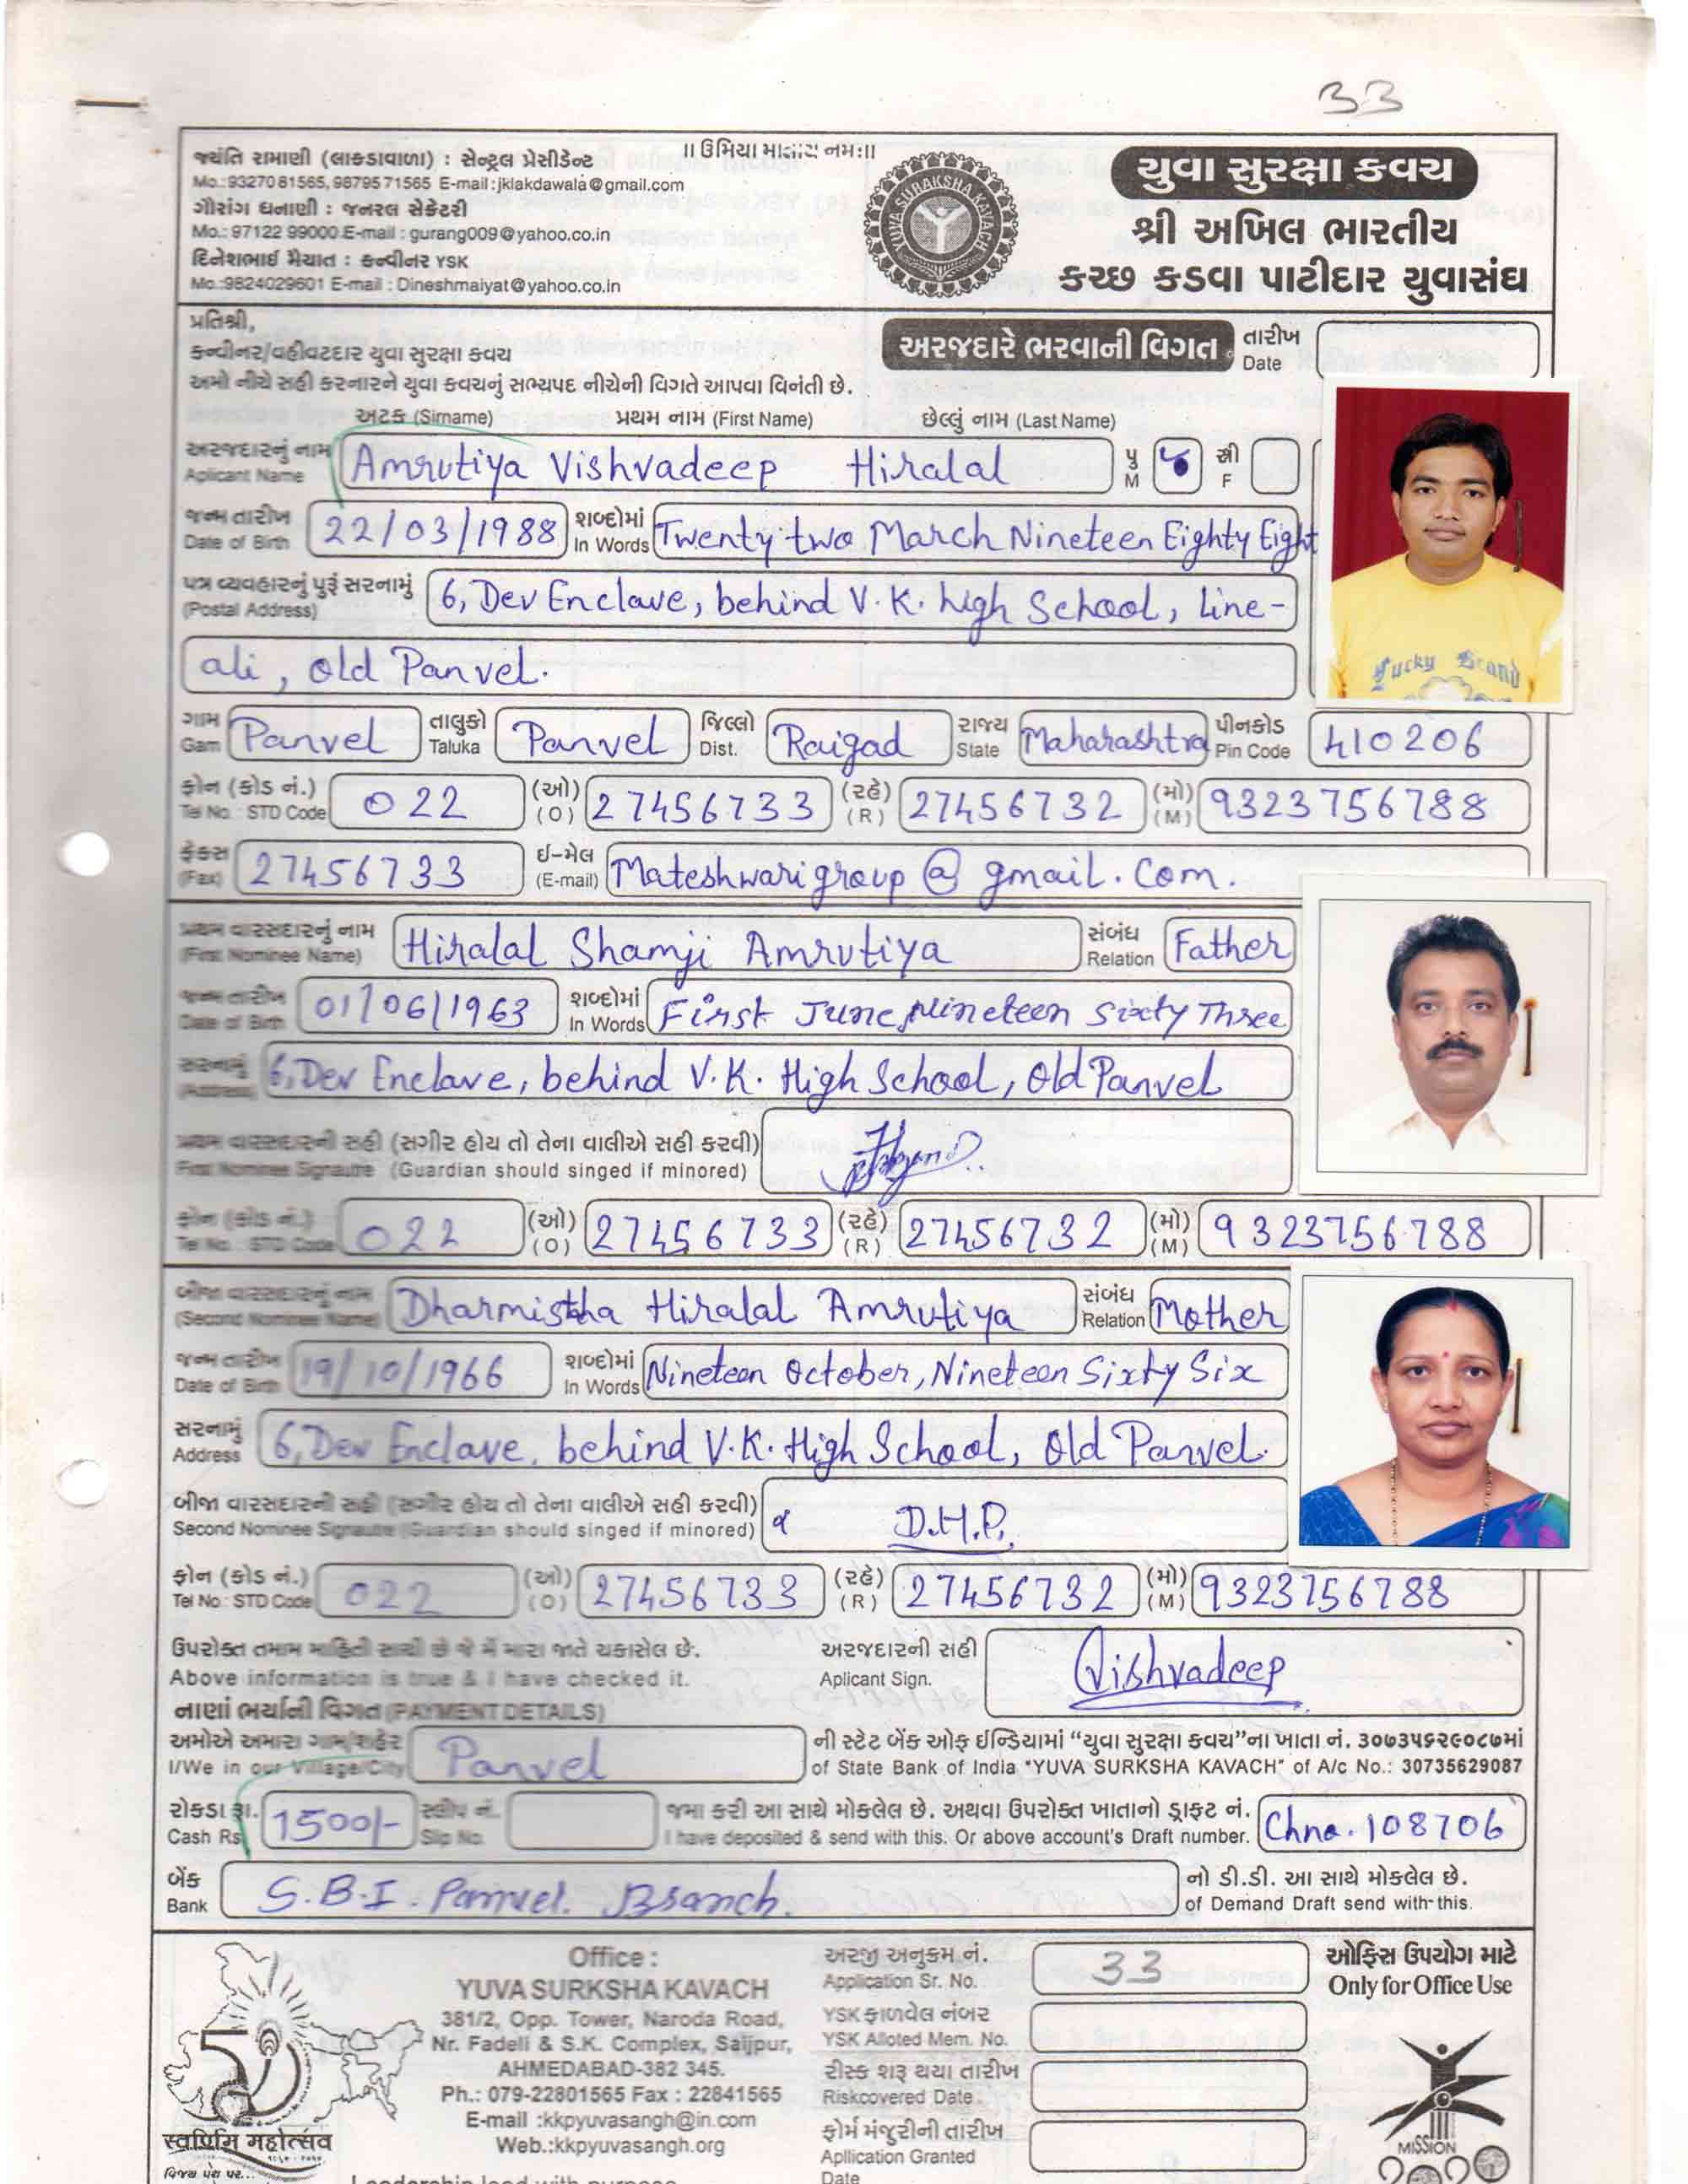 33
॥ ઉમિયા માતાય નમઃ॥
જયંતિ રામાણી (લાકડાવાળા) : સેન્ટ્રલ પ્રેસીડેન્ટ
Mo.:9327081565, 9879571565 E-mail :jklakdawala@gmail.com
ગૌરાંગ ધનાણી : જનરલ સેક્રેટરી
Mo.: 97122 99000 E-mail : gurang009@yahoo.co.in
દિનેશભાઈ મૈયાત : કન્વીનર YSK
Mo.:9824029601 E-mail : Dineshmaiyat@yahoo.co.in
YUVA SURAKSHA KAVACH
યુવા સુરક્ષા કવચ
શ્રી અખિલ ભારતીય
કચ્છ કડવા પાટીદાર યુવાસંઘ
પ્રતિશ્રી,
કન્વીનર/વહીવટદાર યુવા સુરક્ષા કવચ
અમો નીચે સહી કરનારને યુવા કવચનું સભ્યપદ નીચેની વિગતે આપવા વિનંતી છે.
અરજદારે ભરવાની વિગત
તારીખ
Date
અટક (Sirname) પ્રથમ નામ (First Name) છેલ્લું નામ (Last Name)
અરજદારનું નામ
Aplicant Name Amrutiya Vishvadeep Hiralal પુ M સ્ત્રી F
જન્મ તારીખ
Date of Birth 22/03/1988 શબ્દોમાં In Words Twenty two March Nineteen Eighty Eight
પત્ર વ્યવહારનું પુરૂં સરનામું
(Postal Address) 6, Dev Enclave, behind V.K. high School, Line-
ali, old Panvel.
Lucky Brand
ગામ Gam Panvel તાલુકો Taluka Panvel જિલ્લો Dist. Raigad રાજ્ય State Maharashtra પીનકોડ Pin Code 410206
ફોન (કોડ નં.)
Tel No. : STD Code 022 (ઓ) (O) 27456733 (રહે) (R) 27456732 (મો) (M) 9323756788
ફેક્સ (Fax) 27456733 ઈ-મેલ (E-mail) Mateshwarigroup @ gmail. Com.
પ્રથમ વારસદારનું નામ
(First Nominee Name) Hiralal Shamji Amrutiya સંબંધ Relation Father
જન્મ તારીખ
Date of Birth 01/06/1963 શબ્દોમાં In Words First June, Nineteen Sixty Three
સરનામું
(Address) 6, Dev Enclave, behind V.K. High School, Old Panvel
પ્રથમ વારસદારની સહી (સગીર હોય તો તેના વાલીએ સહી કરવી)
First Nominee Signautre (Guardian should singed if minored)
ફોન (કોડ નં.)
Tel No. : STD Code 022 (ઓ) (O) 27456733 (રહે) (R) 27456732 (મો) (M) 9323756788
બીજા વારસદારનું નામ
(Second Nominee Name) Dharmistha Hiralal Amrutiya સંબંધ Relation Mother
જન્મ તારીખ
Date of Birth 19/10/1966 શબ્દોમાં In Words Nineteen October, Nineteen Sixty Six
સરનામું
Address 6, Dev Enclave, behind V.K. High School, Old Panvel.
બીજા વારસદારની સહી (સગીર હોય તો તેના વાલીએ સહી કરવી)
Second Nominee Signautre (Guardian should singed if minored) D.H.P.
ફોન (કોડ નં.)
Tel No : STD Code 022 (ઓ) (O) 27456733 (રહે) (R) 27456732 (મો) (M) 9323756788
ઉપરોક્ત તમામ માહિતી સાચી છે જે મેં મારા જાતે ચકાસેલ છે.
Above information is true & I have checked it.
અરજદારની સહી
Aplicant Sign. Vishvadeep
નાણાં ભર્યાની વિગત (PAYMENT DETAILS)
અમોએ અમારા ગામ/શહેર
I/We in our Village/City Panvel
ની સ્ટેટ બેંક ઓફ ઈન્ડિયામાં “યુવા સુરક્ષા કવચ”ના ખાતા નં. ૩૦૭૩૫૬૨૯૦૮૭માં
of State Bank of India "YUVA SURKSHA KAVACH" of A/c No.: 30735629087
રોકડા રૂા.
Cash Rs. 1500/- સ્લીપ નં. Slip No.
જમા કરી આ સાથે મોકલેલ છે. અથવા ઉપરોક્ત ખાતાનો ડ્રાફ્ટ નં.
I have deposited & send with this. Or above account's Draft number. Chno. 108706
બેંક
Bank S.B.I. Panvel. Branch.
નો ડી.ડી. આ સાથે મોકલેલ છે.
of Demand Draft send with this.
Office :
YUVA SURKSHA KAVACH
381/2, Opp. Tower, Naroda Road,
Nr. Fadeli & S.K. Complex, Saijpur,
AHMEDABAD-382 345.
Ph.: 079-22801565 Fax : 22841565
E-mail :kkpyuvasangh@in.com
Web.:kkpyuvasangh.org
અરજી અનુક્રમ નં.
Application Sr. No. 33
YSK ફાળવેલ નંબર
YSK Alloted Mem. No.
રીસ્ક શરૂ થયા તારીખ
Riskcovered Date
ફોર્મ મંજુરીની તારીખ
Apllication Granted
Date
ઓફિસ ઉપયોગ માટે
Only for Office Use
50
स्वर्णिम महोत्सव
MISSION
Leadership lead with purpose